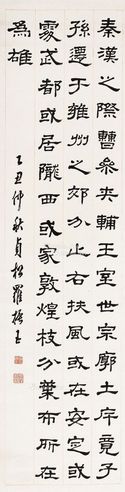 秦漢之際曹參夾輔王室世宗廓土斥竟子
孫遷于雍州之郊分止右扶風或在安定或
處武都或居隴西或家敦煌枝分葉布所在
爲雄
乙丑仲秋貞松羅振玉